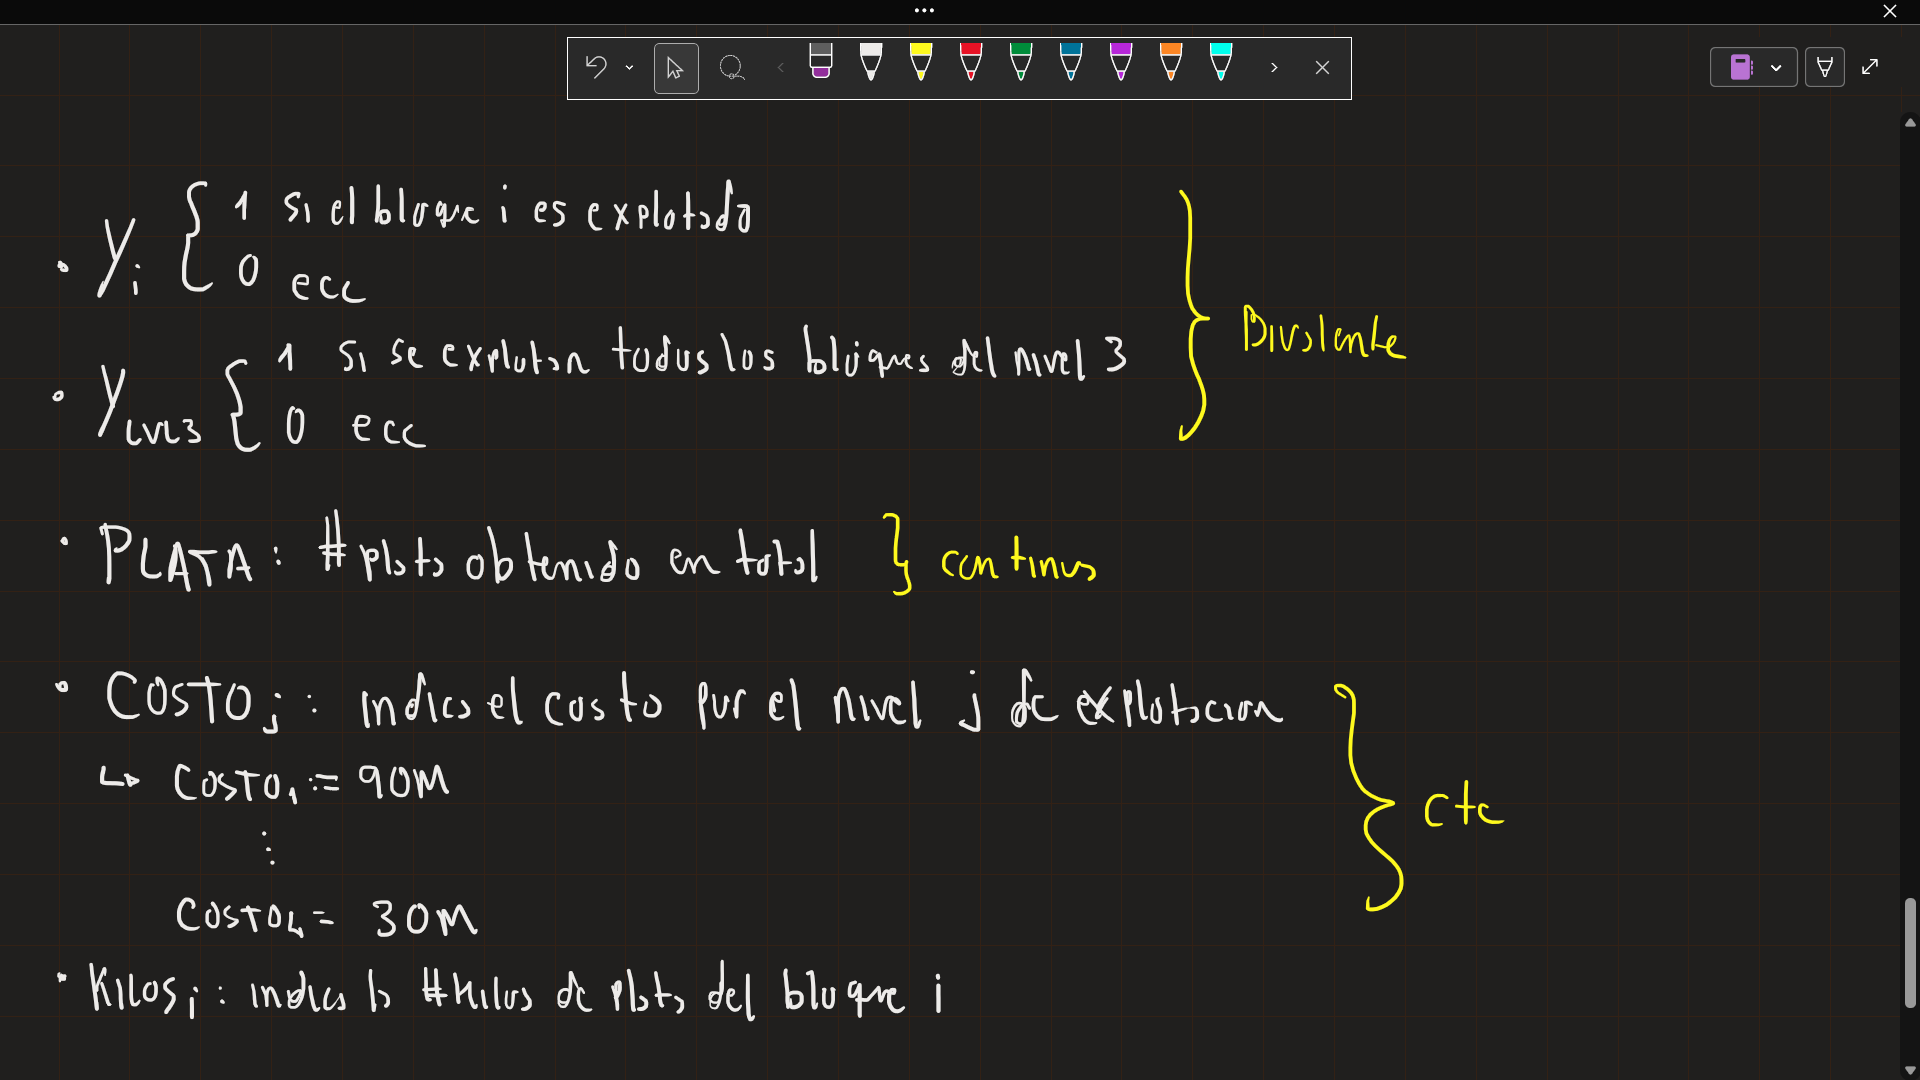 • Yi { 1 si el bloque i es explotado
0 ecc
• YLVL3 { 1 si se explotan todos los bloques del nivel 3
0 ecc
} Bivalente
• PLATA: # plata obtenido en total } continua
• COSTOj: indica el costo por el nivel j de explotacion
↳ COSTO1 := 90M
⋮
COSTO4 = 30M
} cte
• KILOSi: indica la #Kilos de plata del bloque i